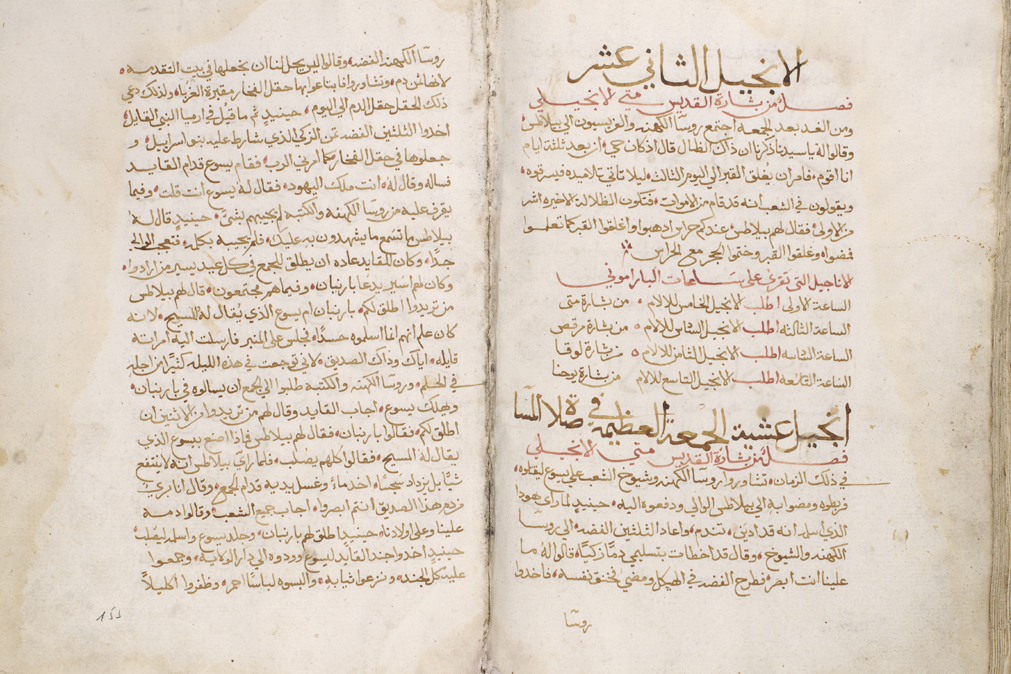 الانجيل الثاني عشر
فصل من بشارة القديس متي الانجيلي
ومن الغد بعد الجمعه اجتمع روسا الكهنه والفريسيون الي بيلاطس
وقالوا له ياسيدنا ذكرنا ان ذاك الضال قال اذ كان حي ان بعد ثلثة ايام
انا اقوم فامر ان يغلق القبر الي اليوم الثالث ليلا تاتي تلاميذه فيسرقوه
ويقولون في الشعب انه قد قام من الاموات فتكون الظلالة الاخيره اشر
من الاولي فقال لهم بيلاطس عندكم حراس اذهبوا واغلقوا القبر كما تعلموا
فمضوا وغلقوا القبر وختموا الحجر مع الحراس
الاناجيل التي تقرى علي ساعات الباراموني
الساعة الاولي اطلب الانجيل الخامس للالام من بشارة متي
الساعة الثالثه اطلب الانجيل السادس للالام من بشارة مرقص
الساعة السادسه اطلب الانجيل الثامن للالام من بشارة لوقا
الساعة التاسعه اطلب الانجيل التاسع للالام من بشارة يوحنا
انجيل عشية الجمعة العظيمه في صلاة المسا
فصل من بشارة القديس متي الانجيلي
في ذلك الزمان تشاوروا روسا الكهنه وشيوخ الشعب علي يسوع ليقتلوه
فربطوه ومضوا به الي بيلاطس الوالي ودفعوه اليه حينيذ لما راي يهودا
الذي اسلمه انه قد ادين تندم واعاد الثلثين الفضه الي روسا
الكهنه والشيوخ وقال قد اخطات بتسليمي دما زكيا قالوا له ما
علينا انت ابصر فطرح الفضه في الهيكل ومضي فخنق نفسه فاخذوا
روسا
روسا الكهنه الفضه وقالوا ليس يحل لنا ان نجعلها في بيت التقدسه
لانها ثمن دم وتشاوروا فابتاعوا بها حقل الفخار مقبرة الغربا ولذلك دعي
ذلك الحقل حقل الدم الي اليوم حينيذ تم ما قيل في ارميا النبي القايل
اخذوا الثلثين الفضه ثمن الزكي الذي شارط عليه بنو اسراييل و
جعلوها في حقل الفخار كما امرني الرب فقام يسوع قدام القايد
فساله وقال له انت ملك اليهود فقال له يسوع انت قلت وفيما
يقرف عليه من روسا الكهنه والكتبه لم يجيبهم بشي حينيذ قال له
بيلاطس ما تسمع ما يشهدون به عليك فلم يجيبه بكلمه فتعجب الوالي
جدا وكان للقايد عاده ان يطلق للجمع في كل عيد يسير من ارادوا
وكان لهم اسير يدعا باربنان وفيما هم مجتمعون قال لهم بيلاطس
من تريدوا اطلق لكم باربنان ام يسوع الذي يقال له المسيح لانه
كان علم انهم انما اسلموه حسدا فجلس علي المنبر فارسلت اليه امراته
قايله اياك وذاك الصديق لاني توجعت في هذه الليله كثيرا من اجله
في الحلم وروسا الكهنه والكتبة طلبوا الي الجمع ان يسالوه في باربنان
ويهلك يسوع اجاب القايد وقال لهم من تريدوا من الاثنين ان
اطلق لكم فقالوا باربنان فقال لهم بيلاطس فماذا اصنع بيسوع الذي
يقال له المسيح فقالوا كلهم يصلب فلما راي بيلاطس انه لا ينتفع
شيا بل يزداد سجسا اخذ ما وغسل يديه قدام الجمع وقال انا بري
من دم هذا الصديق انتم ابصروا اجاب جميع الشعب وقالوا دمه
علينا وعلي اولادنا حينيذ اطلق لهم باربنان وجلد يسوع واسلم ليصلب
حينيذ اخذوا جند القايد ليسوع وردوه الي دار الولايه وجمعوا
عليه كل الجند ونزعوا ثيابه والبسوه لباسا احمر وظفروا اكليلا
١٥١